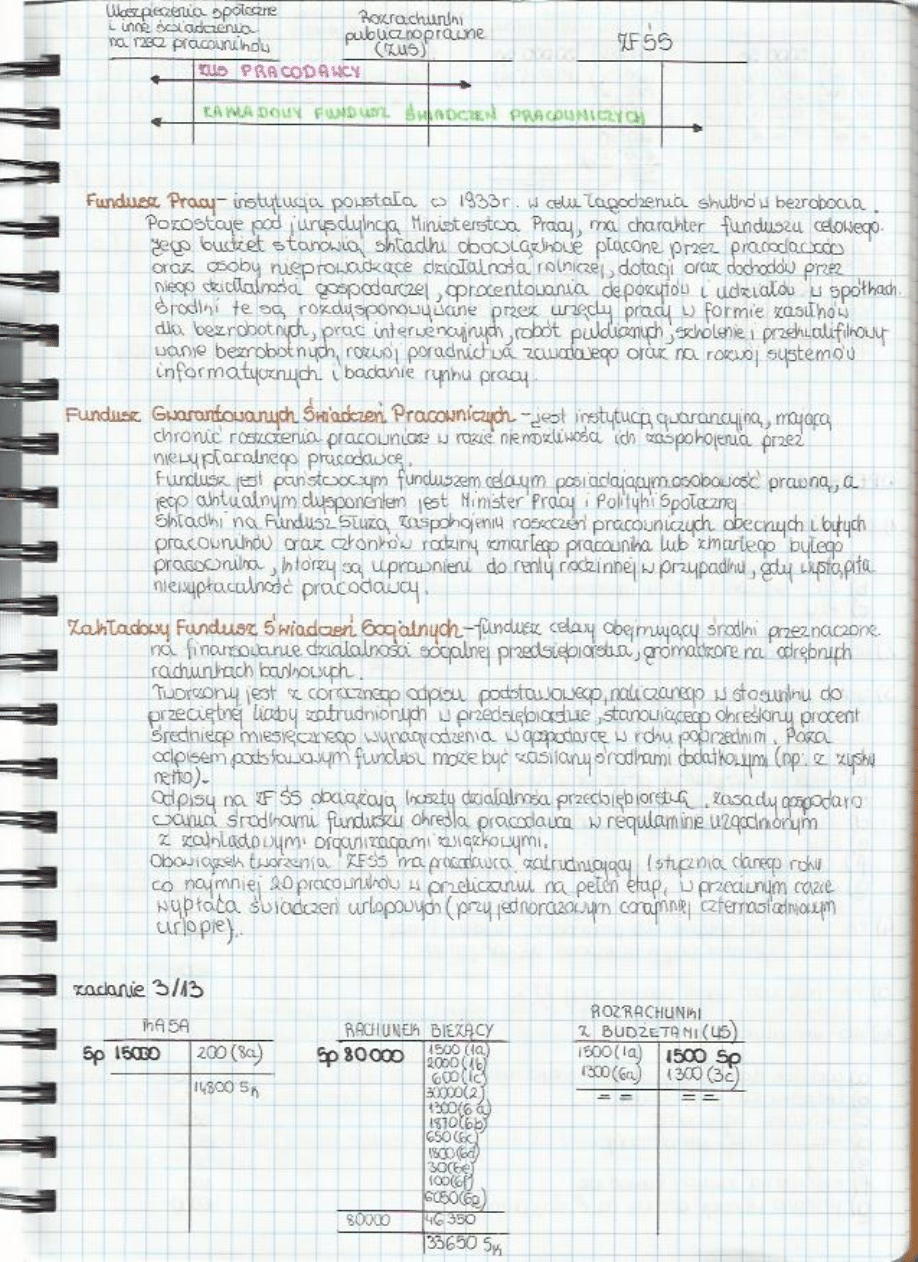 Ubezpieczenia społeczne
i inne świadczenia
na rzecz pracowników
Rozrachunki
publicznoprawne
(ZUS)
ZFŚS
ZUS PRACODAWCY
ZAKŁADOWY FUNDUSZ ŚWIADCZEŃ PRACOWNICZYCH
Fundusz Pracy - instytucja powstała w 1933r. w celu łagodzenia skutków bezrobocia.
Pozostaje pod jurysdykcją Ministerstwa Pracy, ma charakter funduszu celowego.
Jego budżet stanowią składki obowiązkowe płacone przez pracodawców
oraz osoby nieprowadzące działalności rolniczej, dotacji oraz dochodów przez
niego działalności gospodarczej, oprocentowania depozytów i udziałów w spółkach.
Środki te są rozdysponowywane przez urzędy pracy w formie zasiłków
dla bezrobotnych, prac interwencyjnych, robót publicznych, szkolenie i przekwalifikowy
wanie bezrobotnych, rozwój poradnictwa zawodowego oraz na rozwój systemów
informatycznych i badanie rynku pracy.
Fundusz Gwarantowanych Świadczeń Pracowniczych - jest instytucją gwarancyjną, mającą
chronić roszczenia pracownicze w razie niemożliwości ich zaspokojenia przez
niewypłacalnego pracodawcę.
Fundusz jest państwowym funduszem celowym posiadającym osobowość prawną, a
jego aktualnym dysponentem jest Minister Pracy i Polityki Społecznej
Składki na Fundusz służą zaspokojeniu roszczeń pracowniczych obecnych i byłych
pracowników oraz członków rodziny zmarłego pracownika lub zmarłego byłego
pracownika, którzy są uprawnieni do renty rodzinnej w przypadku, gdy wystąpiła
niewypłacalność pracodawcy.
Zakładowy Fundusz Świadczeń Socjalnych - fundusz celowy obejmujący środki przeznaczone
na finansowanie działalności socjalnej przedsiębiorstwa, gromadzone na odrębnych
rachunkach bankowych.
Tworzony jest z corocznego odpisu podstawowego, naliczanego w stosunku do
przeciętnej liczby zatrudnionych w przedsiębiorstwie, stanowiącego określony procent
średniego miesięcznego wynagrodzenia w gospodarce w roku poprzednim. Poza
odpisem podstawowym fundusz może być zasilany środkami dodatkowymi (np. z zysku
netto).
Odpisy na ZFŚS obciążają koszty działalności przedsiębiorstwa. Zasady gospodaro
wania środkami funduszu określa pracodawca w regulaminie uzgodnionym
z zakładowymi organizacjami związkowymi.
Obowiązek tworzenia ZFŚS ma pracodawca zatrudniający 1 stycznia danego roku
co najmniej 20 pracowników w przeliczaniu na pełen etap, w przeciwnym razie
wypłata świadczeń urlopowych (przy jednorazowym conajmniej czternastodniowym
urlopie)..
zadanie 3/13
KASA
Sp 15000 200 (8a)
14800 Sk
RACHUNEK BIEŻĄCY
Sp 80000 1500 (1a)
2000 (1b)
600 (1c)
30000 (2)
1300 (6a)
1870 (6b)
650 (6c)
1800 (6d)
30 (6e)
100 (6f)
6050 (6g)
80000 46350
33650 Sk
ROZRACHUNKI
Z BUDŻETAMI (US)
1500 (1a) 1500 Sp
1300 (6a) 1300 (3c)
= = = =